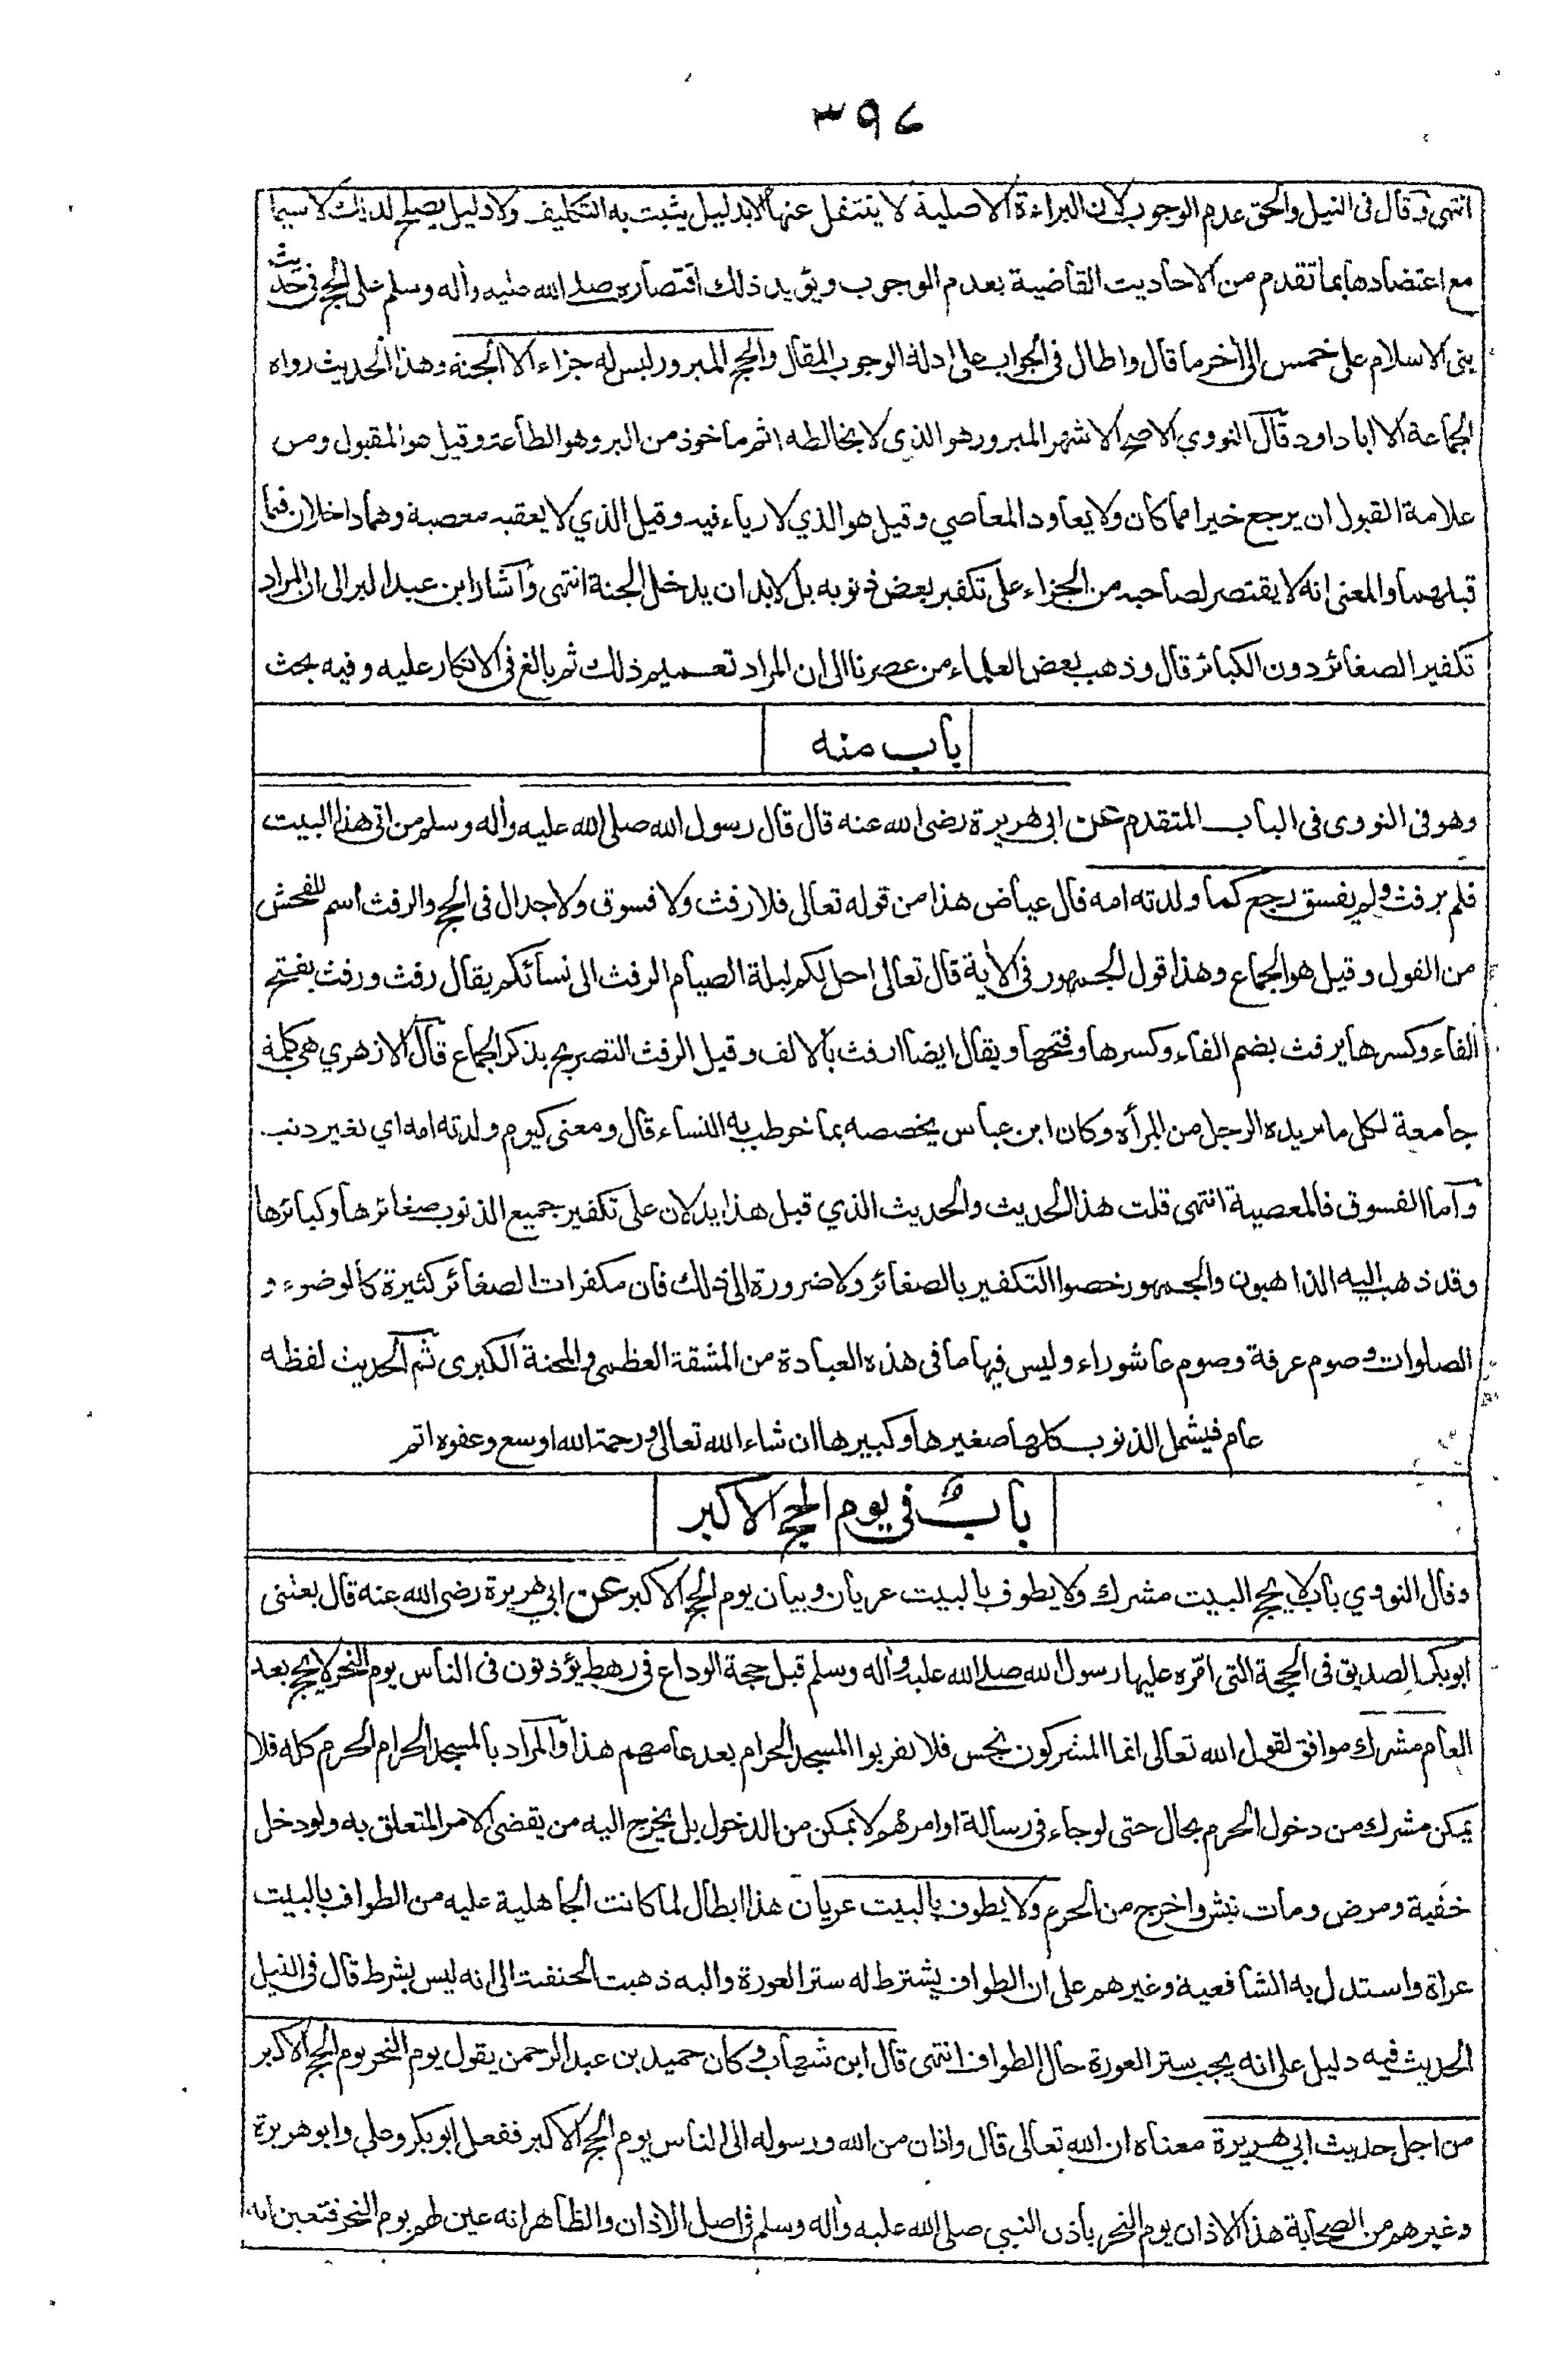 ٣٩٦
انتهى وقال فى النيل والحق عدم الوجوب لان البراءة الاصلية لا ينتقل عنها الا بدليل يثبت به التكليف ولا دليل يصلح لذلك لا سيما
مع اعتضادها بما تقدم من الاحاديث القاضية بعدم الوجوب ويؤيد ذلك اقتصاره صلى الله عليه وأله وسلم على الحج فى حديث
بنى الاسلام على خمس الى أخر ما قال واطال فى الجواب على ادلة الوجوب المقال والحج المبرور ليس له جزاء الا الجنة وهذا الحديث رواه
الجماعة الا ابا داود قال النووي الاصح الاشهر المبرور هو الذي لا يخالطه اثم ماخوذ من البر وهو الطاعة وقيل هو المقبول ومن
علامة القبول ان يرجع خيرا مما كان ولا يعاود المعاصي وقيل هو الذي لا رياء فيه وقيل الذي لا يعقبه معصية وهما داخلان فيما
قبلهما والمعنى انه لا يقتصر لصاحبه من الجزاء على تكفير بعض ذنوبه بل لا بد ان يدخل الجنة انتهى وأشار ابن عبد البر الى ان المراد
تكفير الصغائر دون الكبائر قال وذهب بعض العلماء من عصرنا الى ان المراد تعميم ذلك ثم بالغ فى الانكار عليه وفيه بحث
باب منه
وهو فى النووى فى الباب المتقدم عن ابى هريرة رضى الله عنه قال قال رسول الله صلى الله عليه وأله وسلم من اتى هذا البيت
فلم يرفث ولم يفسق رجع كما ولدته امه قال عياض هذا من قوله تعالى فلا رفث ولا فسوق ولا جدال فى الحج والرفث اسم للفحش
من القول وقيل هو الجماع وهذا قول الجمهور فى الأية قال تعالى احل لكم ليلة الصيام الرفث الى نسائكم يقال رفث ورفث بفتح
الفاء وكسرها يرفث بضم الفاء وكسرها وفتحها ويقال ايضا ارفث بالالف وقيل الرفث التصريح بذكر الجماع قال الازهري هى كلمة
جامعة لكل ما يريده الرجل من المرأه وكان ابن عباس يخصصه بما خوطب به النساء قال ومعنى كيوم ولدته امه اي بغير ذنب.
وأما الفسوق فالمعصية انتهى قلت هذا الحديث والحديث الذي قبل هذا يدلان على تكفير جميع الذنوب صغائرها وكبائرها
وقد ذهب اليه الذاهبون والجمهور خصوا التكفير بالصغائر ولا ضرورة الى ذلك فان مكفرات الصغائر كثيرة كالوضوء و
الصلوات وصوم عرفة وصوم عاشوراء وليس فيها ما فى هذه العبادة من المشقة العظمى والمحنة الكبرى ثم الحديث لفظه
عام فيشمل الذنوب كلها صغيرها وكبيرها ان شاء الله تعالى ورحمة الله اوسع وعفوه اتم
بابٌ فى يوم الحج الاكبر
وقال النووي باب لا يحج البيت مشرك ولا يطوف بالبيت عريان وبيان يوم الحج الاكبر عن ابي هريرة رضى الله عنه قال بعثنى
ابو بكر الصديق فى الحجة التى امّره عليها رسول الله صلى الله عليه وأله وسلم قبل حجة الوداع فى رهط يؤذنون فى الناس يوم النحر لا يحج بعد
العام مشرك موافق لقول الله تعالى انما المشركون نجس فلا يقربوا المسجد الحرام بعد عامهم هذا والمراد بالمسجد الحرام الحرم كله فلا
يمكن مشرك من دخول الحرم بحال حتى لو جاء فى رسالة او امر مهم لا يمكن من الدخول بل يخرج اليه من يقضى الامر المتعلق به ولو دخل
خفية ومرض ومات نبش واخرج من الحرم ولا يطوف بالبيت عريان هذا ابطال لما كانت الجاهلية عليه من الطواف بالبيت
عراة واستدل به الشافعية وغيرهم على ان الطواف يشترط له ستر العورة والبه ذهبت الحنفية الى انه ليس بشرط قال فى النيل
الحديث فيه دليل على انه يجب ستر العورة حال الطواف انتهى قال ابن شهاب وكان حميد بن عبد الرحمن يقول يوم النحر يوم الحج الاكبر
من اجل حديث ابي هريرة معناه ان الله تعالى قال واذان من الله ورسوله الى الناس يوم الحج الاكبر ففعل ابو بكر وعلي وابو هريرة
وغيرهم من الصحابة هذا الاذان يوم النحر باذن النبي صلى الله عليه وأله وسلم فى اصل الاذان والظاهر انه عين لهم يوم النحر فتعين انه